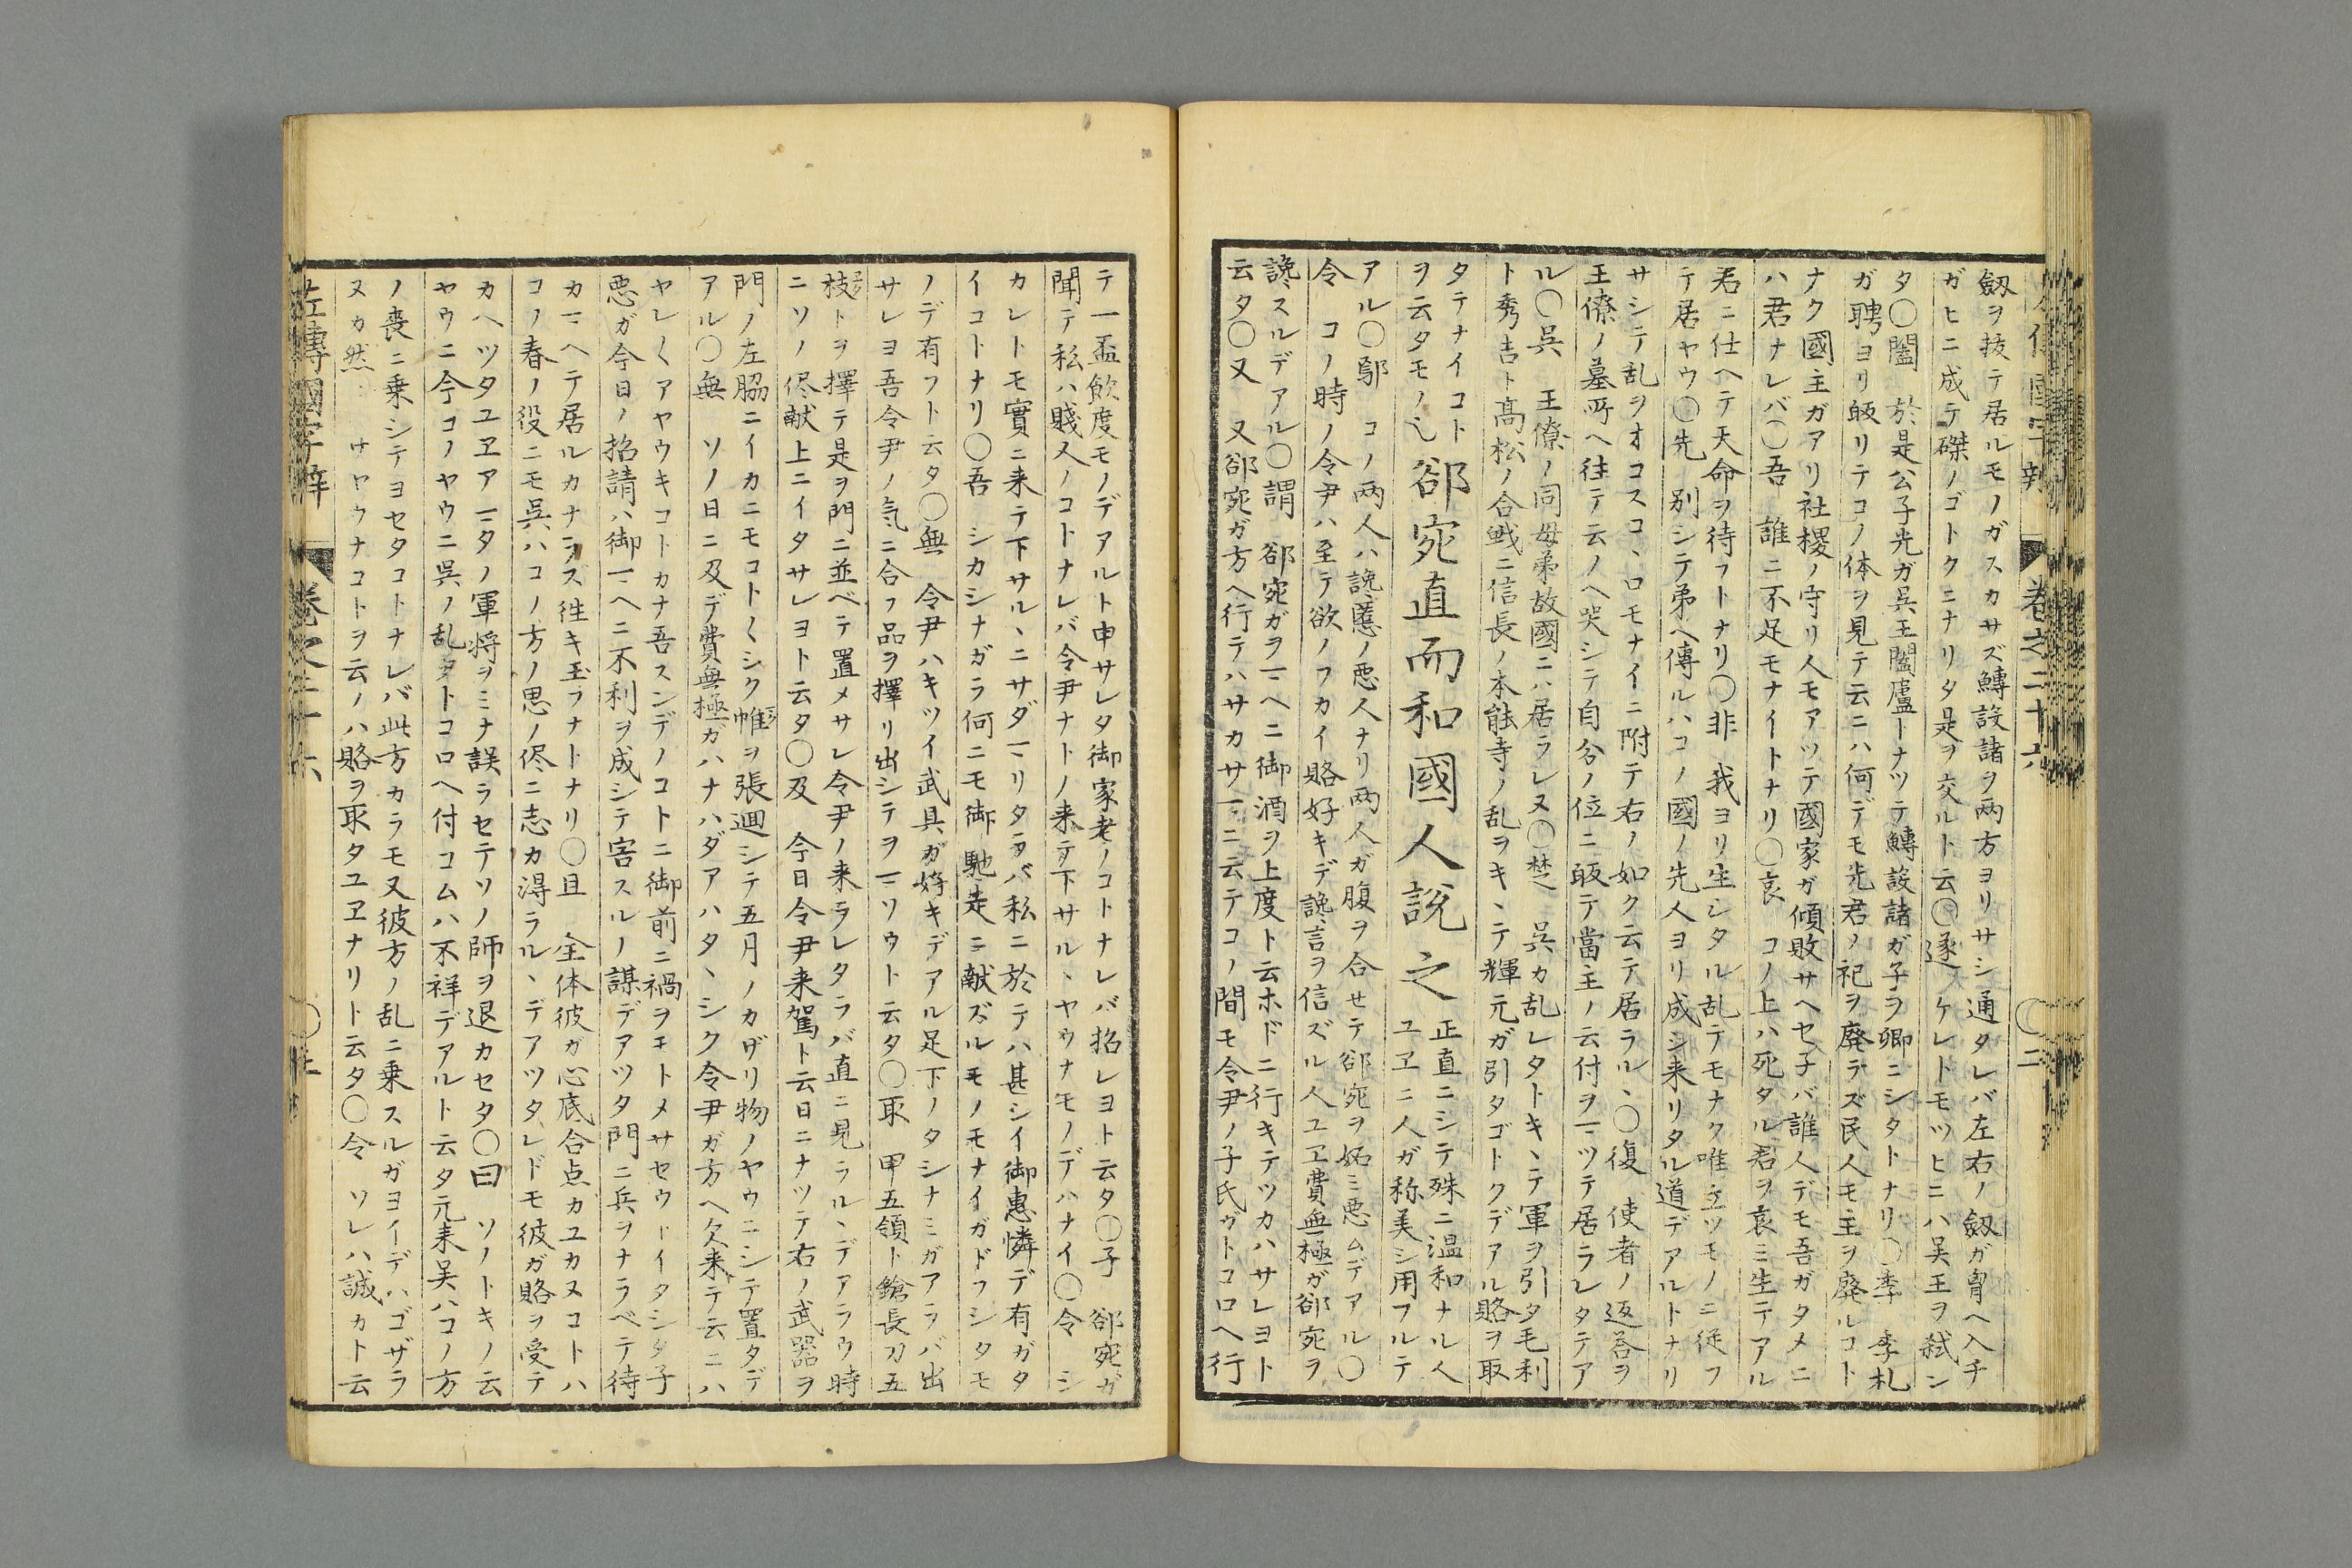 釼ヲ抜テ居ルモノガスカサズ鱄設諸ヲ両方ヨリサシ通タレバ左右ノ釼ガ胷ヘ入チ
ガヒニ成テ磔ノゴトクニナリタ是ヲ交ルト云〇遂 ケレトモツヒニハ吴王ヲ弑シ
タ〇闔 於是公子光ガ呉王闔廬トナツテ鱄設諸ガ子ヲ卿ニシタトナリ〇季 季札
ガ聘ヨリ皈リテコノ体ヲ見テ云ニハ何デモ先君ノ祀ヲ廃ラズ民人モ主ヲ廃ルコト
ナク國主ガアリ社稷ノ守リ人モアツテ國家ガ傾敗サヘセ子バ誰人デモ吾ガタメニ
ハ君ナレバ〇吾 誰ニ不足モナイトナリ〇哀 コノ上ハ死タル君ヲ哀ミ生テアル
君ニ仕ヘテ天命ヲ待フトナリ〇非 我ヨリ生シタル乱テモナク唯立ツモノニ従フ
テ居ヤウ〇先 別シテ弟ヘ傳ルハコノ國ノ先人ヨリ成シ来リタル道デアルトナリ
サシテ乱ヲオコスコヽロモナイニ附テ右ノ如ク云テ居ラルヽ〇復 使者ノ返答ヲ
王僚ノ墓所ヘ往テ云ノヘ哭シテ自分ノ位ニ皈テ當主ノ云付ヲマツテ居ラレタテア
ル〇呉 王僚ノ同母弟故國ニハ居ラレヌ〇楚 呉カ乱レタトキヽテ軍ヲ引タ毛利
ト秀吉ト髙松ノ合戦ニ信長ノ本能寺ノ乱ヲキヽテ輝元ガ引タゴトクデアル賂ヲ取
タテナイコト
ヲ云タモノ也 郤宛直而和國人説之 正直ニシテ殊ニ温和ナル人
ユヱニ人ガ称美シ用フルテ
アル〇鄢 コノ両人ハ讒慝ノ悪人ナリ両人ガ腹ヲ合せテ郤宛ヲ妬ミ悪ムデアル〇
令 コノ時ノ令尹ハ至テ欲ノフカイ賂好キデ讒言ヲ信ズル人ユヱ費無極ガ郤宛ヲ
讒スルデアル〇謂 郤宛ガヲマヘニ御酒ヲ上度ト云ホドニ行キテツカハサレヨト
云タ〇又 又郤宛ガ方ヘ行テハサカサマニ云テコノ間モ令尹ノ子氏ウトコロヘ行
テ一盃飲度モノデアルト申サレタ御家老ノコトナレバ招レヨト云タ〇子 郤宛ガ
聞テ私ハ賤人ノコトナレバ令尹ナトノ来テ下サルヽヤウナモノデハナイ〇令 シ
カレトモ實ニ来テ下サルヽニサダマリタラバ私ニ於テハ甚シイ御惠憐デ有ガタ
イコトナリ〇吾 シカシナガラ何ニモ御馳走ニ献ズルモノモナイガドフシタモ
ノデ有フト云タ〇無 令尹ハキツイ武具ガ好キデアル足下ノタシナミガアラバ出
サレヨ吾令尹ノ気ニ合フ品ヲ擇リ出シテヲマソウト云タ〇取 甲五領ト鎗長刀五
枝トヲ擇テ是ヲ門ニ並ベテ置メサレ令尹ノ来ラレタラバ直ニ見ラルヽデアラウ時
ニソノ侭献上ニイタサレヨト云タ〇及 今日令尹来駕ト云日ニナツテ右ノ武器ヲ
門ノ左脇ニイカニモコト〱シク帷ヲ張廻シテ五月ノカザリ物ノヤウニシテ置タデ
アル〇無 ソノ日ニ及デ費無極ガハナハダアハタヽシク令尹ガ方ヘ欠来テ云ニハ
ヤレ〱アヤウキコトカナ吾スンデノコトニ御前ニ禍ヲモトメサセウトイタシタ子
悪ガ今日ノ招請ハ御マヘニ不利ヲ成シテ害スルノ謀デアツタ門ニ兵ヲナラベテ待
カマヘテ居ルカナラズ往キ玉フナトナリ〇且 全体彼ガ心底合点カユカヌコトハ
コノ春ノ役ニモ呉ハコノ方ノ思ノ侭ニ志カ得ラルヽデアツタレドモ彼ガ賂ヲ受テ
カヘツタユヱアマタノ軍将ヲミナ誤ラセテソノ師ヲ退カセタ〇曰 ソノトキノ云
ヤウニ今コノヤウニ呉ノ乱タトコロヘ付コムハ不祥デアルト云タ元来吴ハコノ方
ノ喪ニ乗シテヨセタコトナレバ此方カラモ又彼方ノ乱ニ乗スルガヨイデハゴザラ
ヌカ然 サヤウナコトヲ云ノハ賂ヲ取タユヱナリト云タ〇令 ソレハ誠カト云
左傳國字辯 卷之二十六